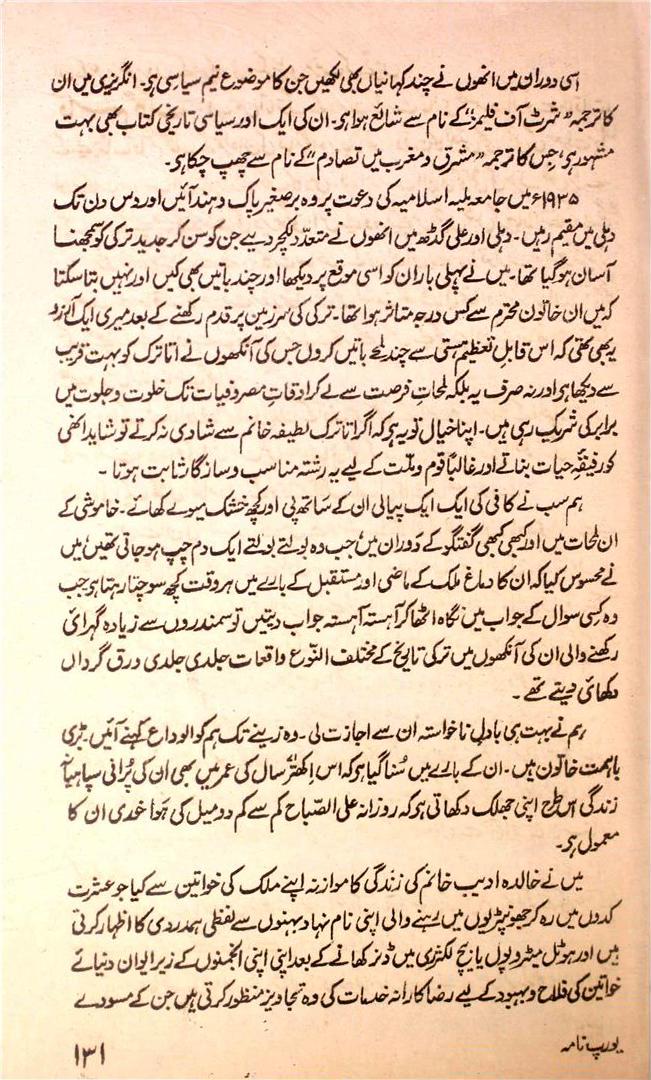 اسی دوران میں انھوں نے چند کہانیاں بھی لکھیں جن کا موضوع نیم سیاسی ہی۔ انگریزی میں ان
کا ترجمہ "شرٹ آف فلیمز" کے نام سے شائع ہوا ہی۔ ان کی ایک اور سیاسی تاریخی کتاب بھی بہت
مشہور ہی، جس کا ترجمہ "مشرق و مغرب میں تصادم" کے نام سے چھپ چکا ہی۔
۱۹۳۵ء میں جامعہ ملیہ اسلامیہ کی دعوت پر وہ برصغیر پاک و ہند آئیں اور دس دن تک
دہلی میں مقیم رہیں۔ دہلی اور علی گڈھ میں انھوں نے متعدد لکچر دیے جن کو سن کر جدید ترکی کو سمجھنا
آسان ہو گیا تھا۔ میں نے پہلی بار ان کو اسی موقع پر دیکھا اور چند باتیں بھی کیں اور نہیں بتا سکتا
کہ میں ان خاتون محترم سے کس درجہ متاثر ہوا تھا۔ ترکی کی سرزمین پر قدم رکھنے کے بعد میری ایک آرزو
یہ بھی تھی کہ اس قابلِ تعظیم ہستی سے چند لمحے باتیں کروں جس کی آنکھوں نے اتاترک کو بہت قریب
سے دیکھا ہی اور نہ صرف یہ بلکہ لمحاتِ فرصت سے لے کر اوقاتِ مصروفیات تک خلوت و جلوت میں
برابر کی شریک رہی ہیں۔ اپنا خیال تو یہ ہی کہ اگر اتاترک لطیفہ خانم سے شادی نہ کرتے تو شاید انھی
کو رفیقۂ حیات بناتے اور غالباً قوم و ملّت کے لیے یہ رشتہ مناسب و سازگار ثابت ہوتا۔
ہم سب نے کافی کی ایک ایک پیالی ان کے ساتھ پی اور کچھ خشک میوے کھائے۔ خاموشی کے
ان لمحات میں اور کبھی کبھی گفتگو کے دَوران میں جب وہ بولتے بولتے ایک دم چپ ہو جاتی تھیں میں
نے محسوس کیا کہ ان کا دماغ ملک کے ماضی اور مستقبل کے بارے میں ہر وقت کچھ سوچتا رہتا ہی جب
وہ کسی سوال کے جواب میں نگاہ اٹھا کر آہستہ آہستہ جواب دیتیں تو سمندروں سے زیادہ گہرائی
رکھنے والی ان کی آنکھوں میں ترکی تاریخ کے مختلف النّوع واقعات جلدی جلدی ورق گرداں
دکھائی دیتے تھے۔
ہم نے بہت ہی بادلِ ناخواستہ ان سے اجازت لی۔ وہ زینے تک ہم کو الوداع کہنے آئیں۔ بڑی
باہمت خاتون ہیں۔ ان کے بارے میں سُنا گیا ہی کہ اس اِکھتّر سال کی عمر میں بھی ان کی پُرانی سپاہیانہ
زندگی اس طرح اپنی جھلک دکھاتی ہی کہ روزانہ علی الصّباح کم سے کم دو میل کی ہَوا خوری ان کا
معمول ہی۔
میں نے خالدہ ادیب خانم کی زندگی کا موازنہ اپنے ملک کی خواتین سے کیا جو عشرت
کدوں میں رہ کر جھونپڑیوں میں رہنے والی اپنی نام نہاد بہنوں سے لفظی ہمدردی کا اظہار کرتی
ہیں اور ہوٹل میٹروپول یا بیچ لگژری میں ڈنر کھانے کے بعد اپنی اپنی انجمنوں کے زیرِ ایوان دنیائے
خواتین کی فلاح و بہبود کے لیے رضاکارانہ خدمات کی وہ تجاویز منظور کرتی ہیں جن کے مسودے
یورپ نامہ
۱۳۱